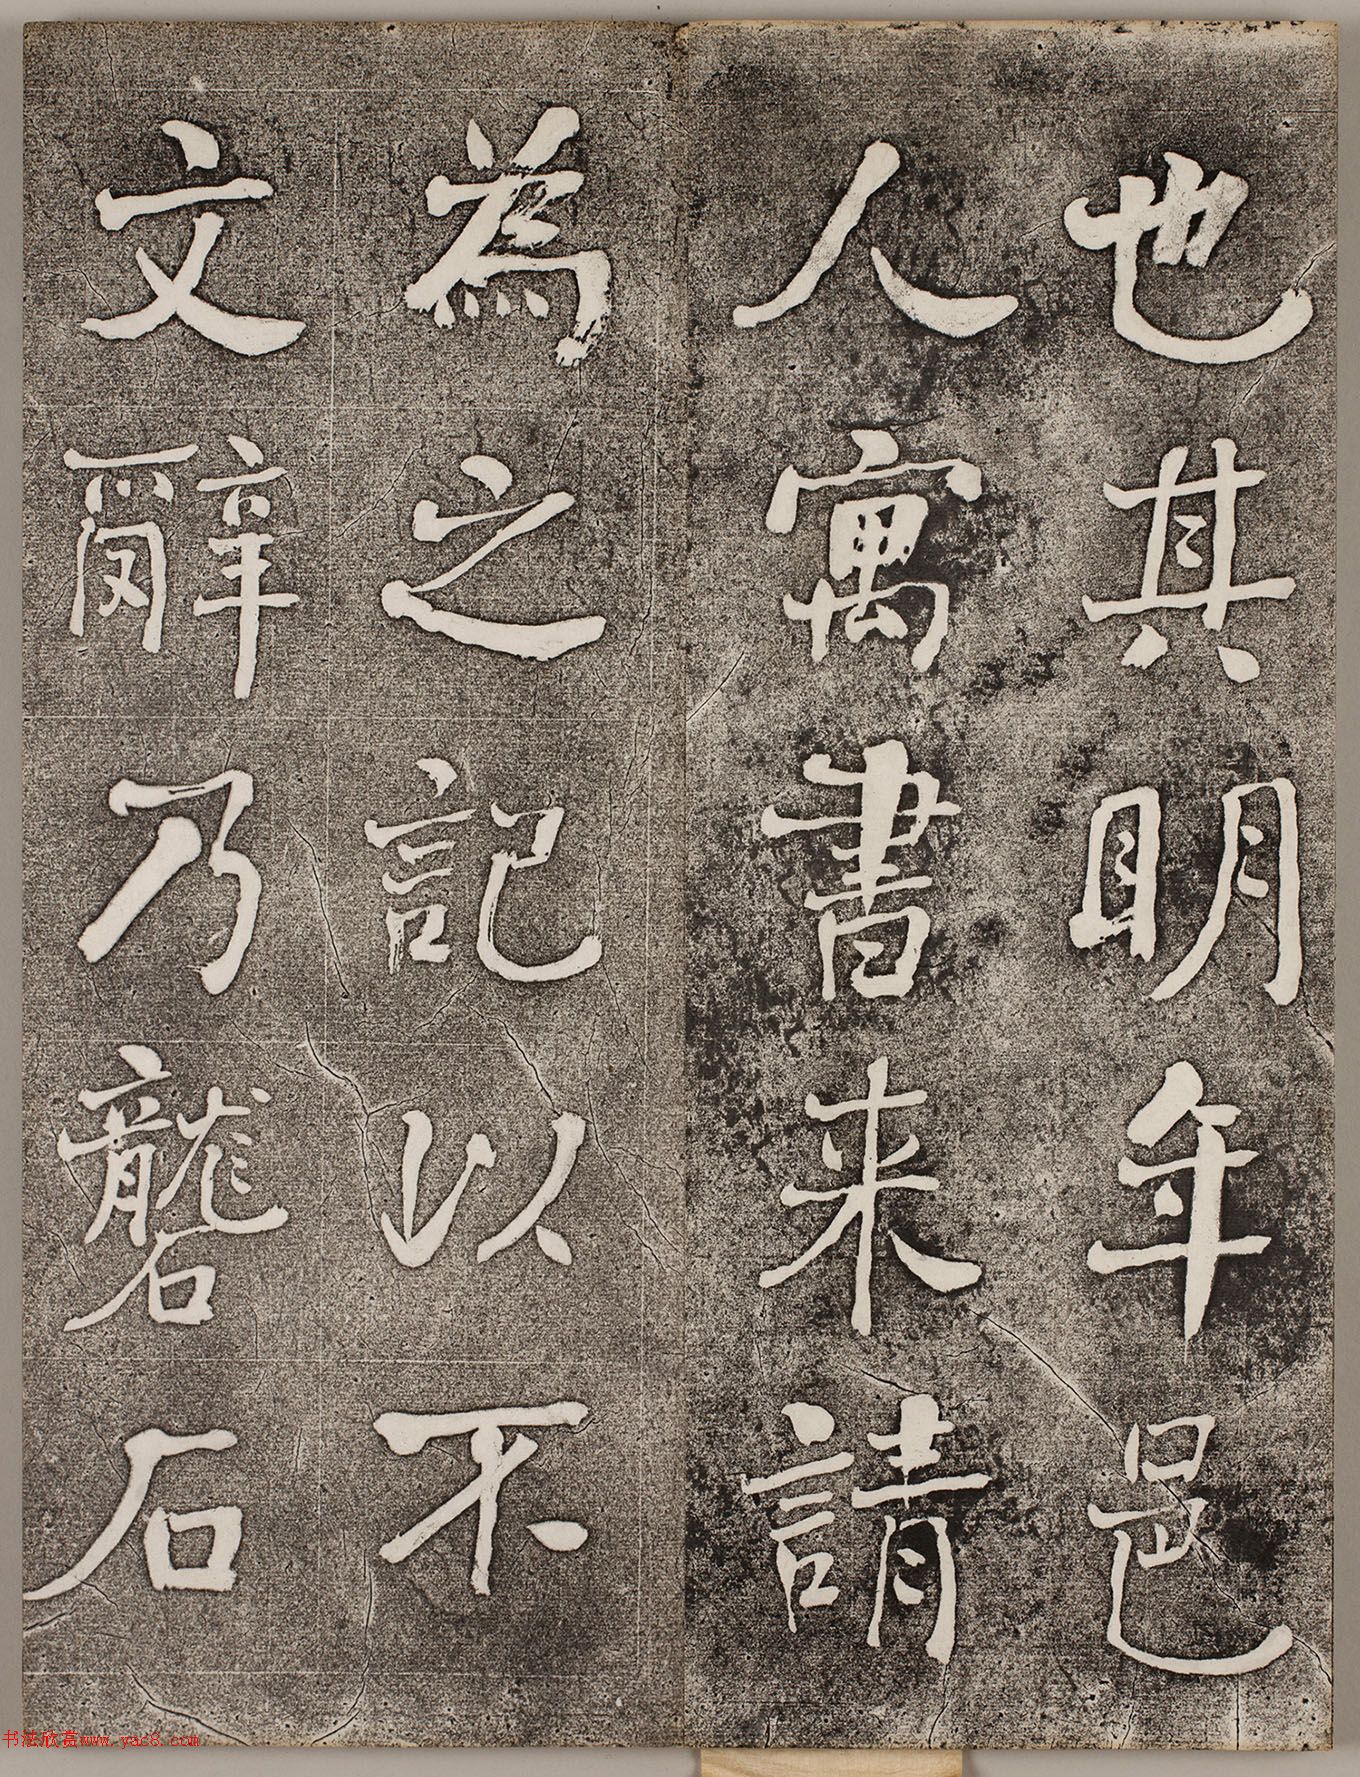 也其明年邑
人寓書来請
為之記以不
文辭乃礱石
书法欣赏www.yac8.com